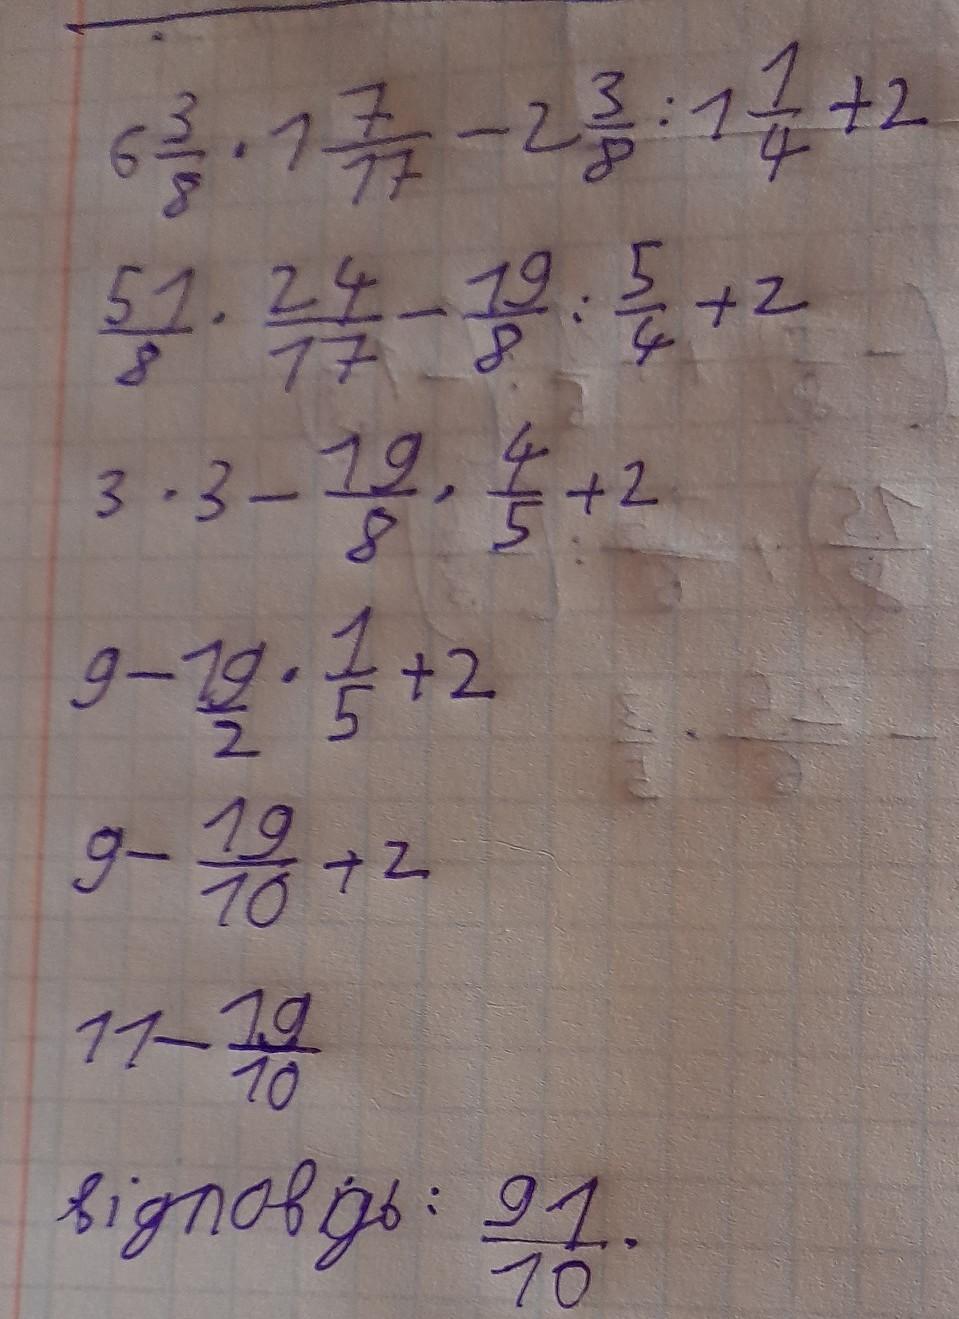 6 3/8 · 1 7/17 − 2 3/8 : 1 1/4 + 2
51/8 · 24/17 − 19/8 : 5/4 + 2
3 · 3 − 19/8 · 4/5 + 2
9 − 19/2 · 1/5 + 2
9 − 19/10 + 2
11 − 19/10
відповідь: 91/10.